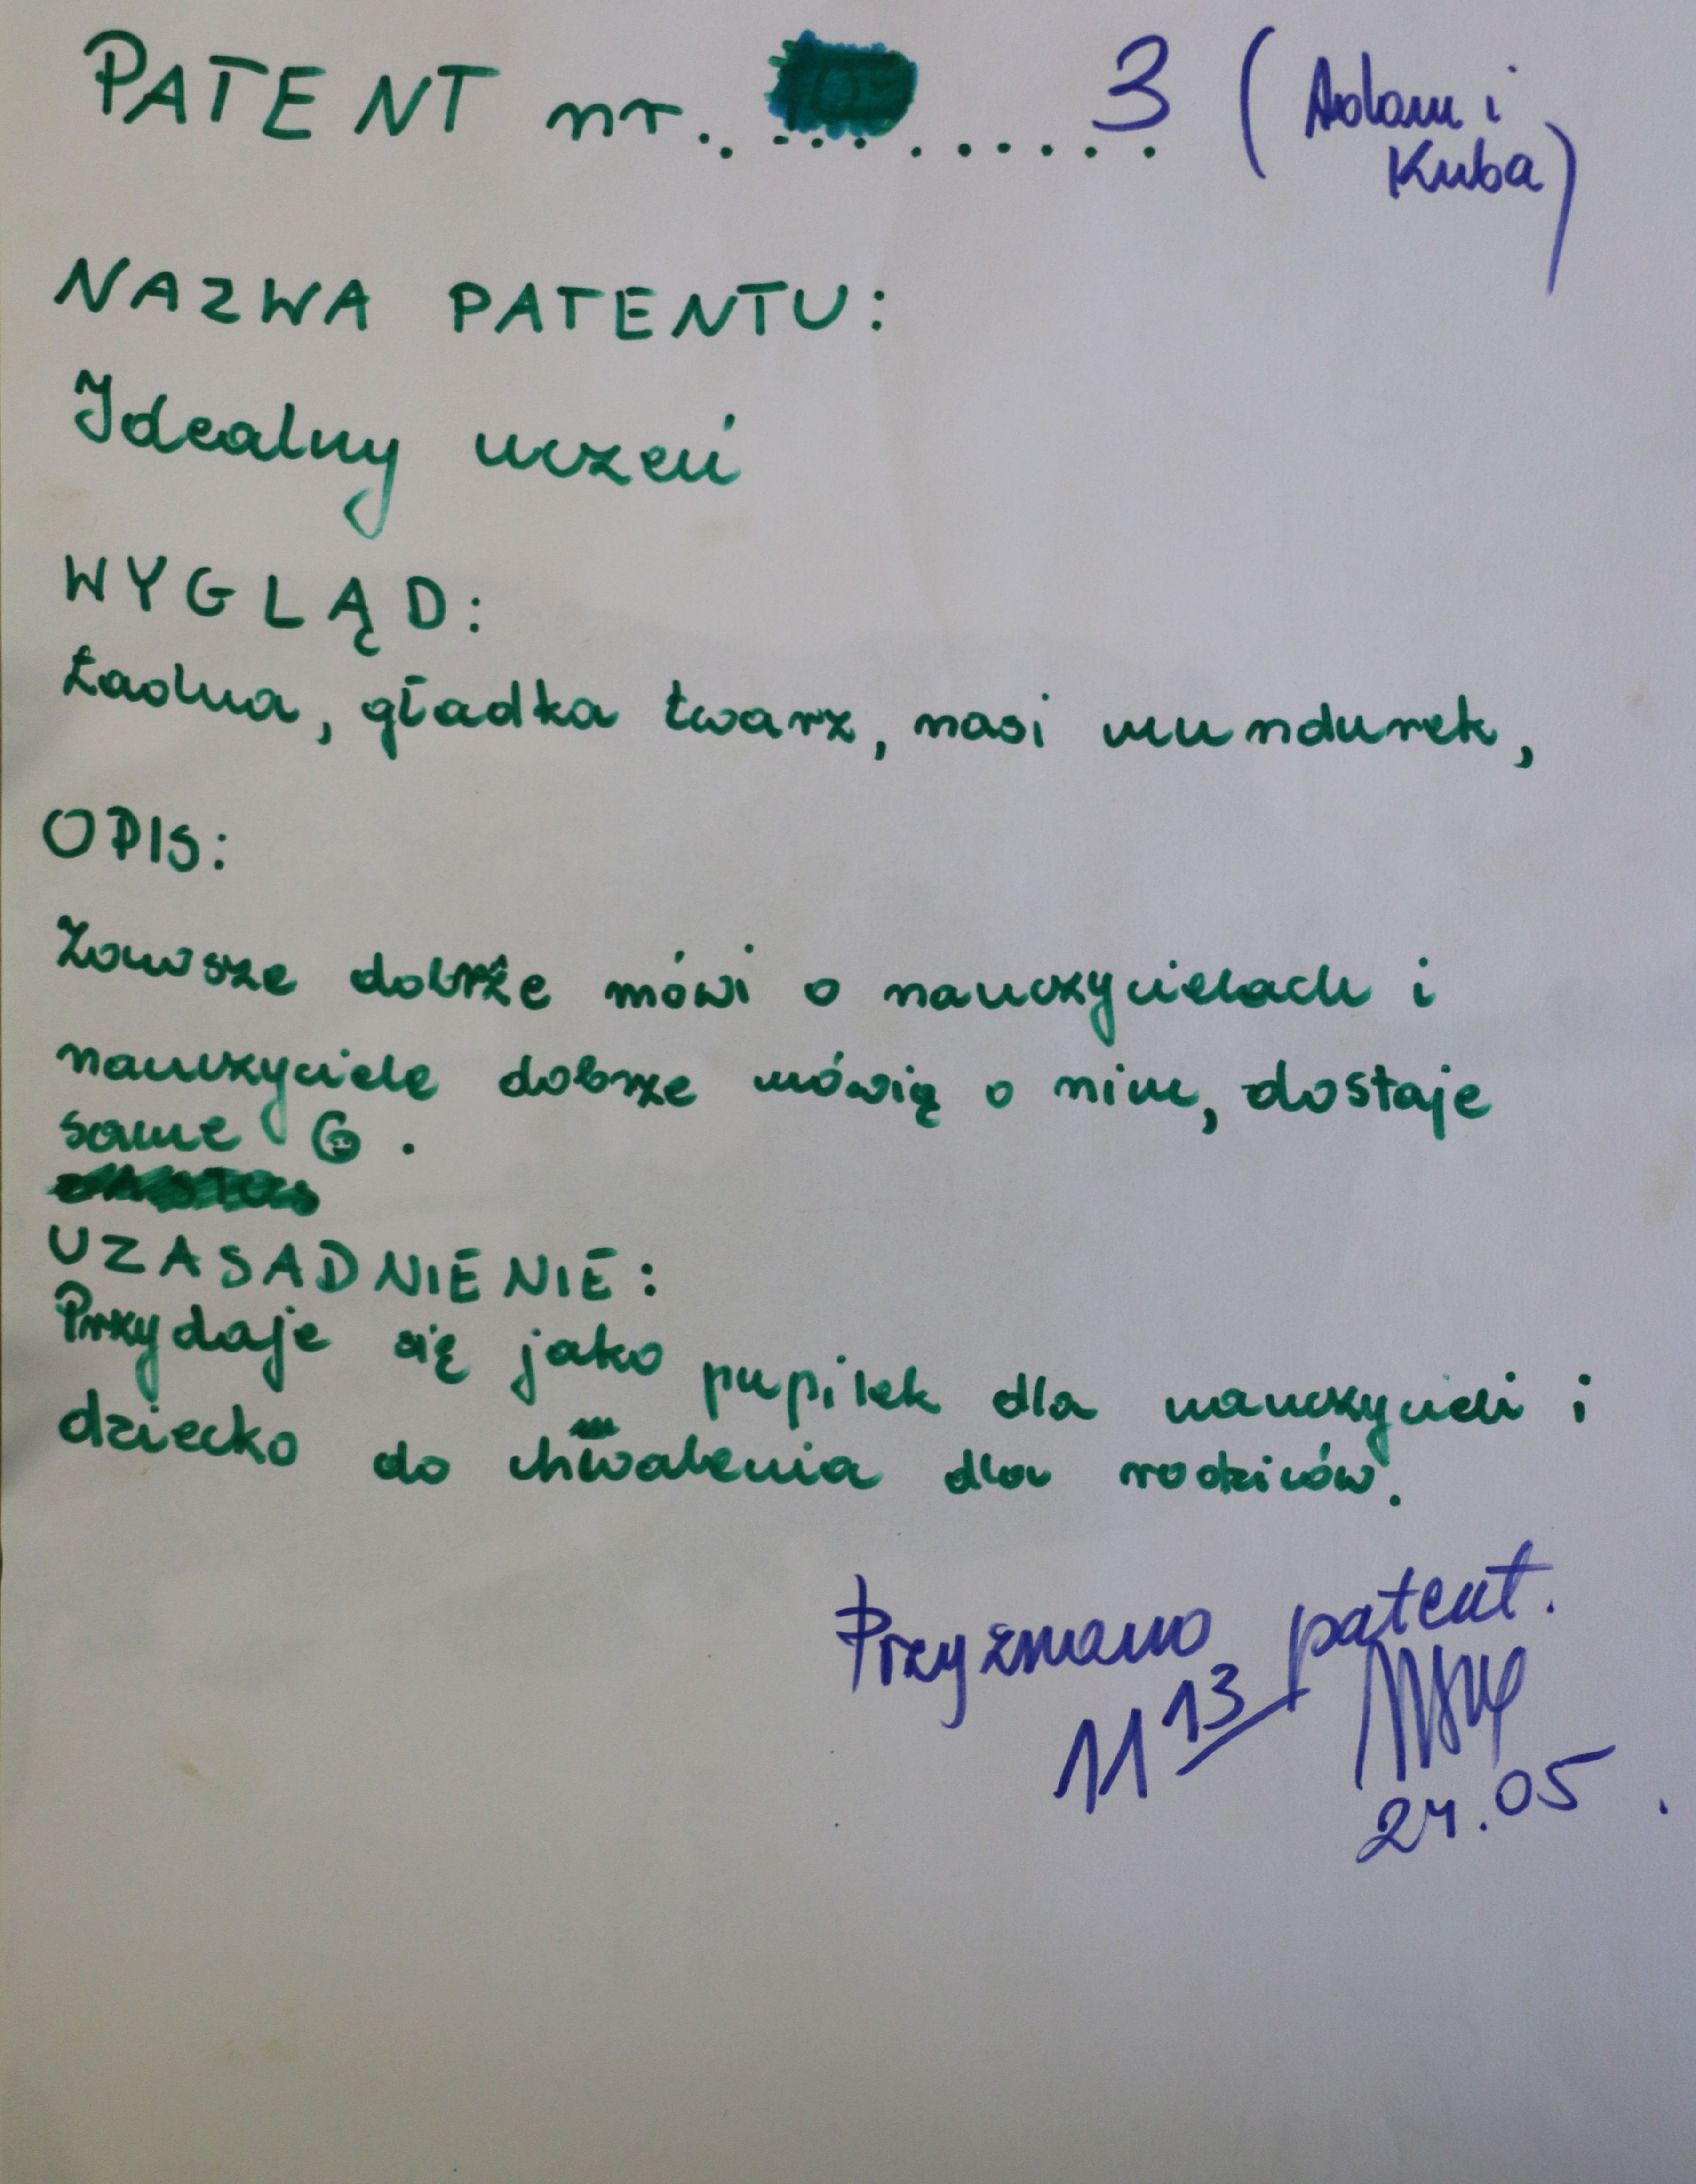 PATENT nr. ......... 3 (Adam i
Kuba)
NAZWA PATENTU:
Idealny uczeń
WYGLĄD:
Ładna, gładka twarz, nasi mundurek,
OPIS:
Zawsze dobrze mówi o nauczycielach i
nauczyciele dobrze mówią o nim, dostaje
same 6.
UZASADNIENIE:
Przydaje się jako pupilek dla nauczycieli i
dziecko do chwalenia dla rodziców.
Przyznano patent.
11 13
24.05.